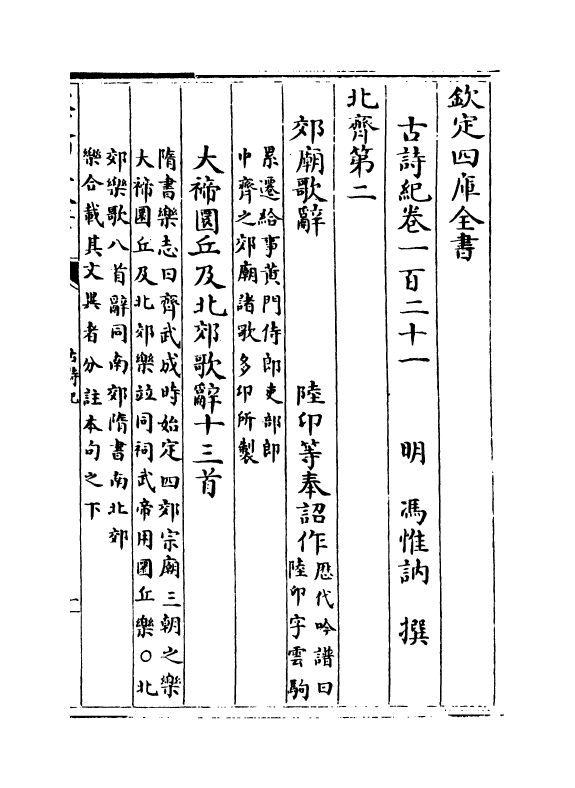 欽定四庫全書
古詩紀卷一百二十一　明　馮惟訥　撰
北齊第二
郊廟歌辭　陸卬等奉詔作
歷代吟譜曰
陸卬字雲駒
累遷給事黃門侍郎吏部郎
中齊之郊廟諸歌多卬所製
大禘圜丘及北郊歌辭十三首
隋書樂志曰齊武成時始定四郊宗廟三朝之樂
大禘圜丘及北郊樂竝同祠武帝用圜丘樂○北
郊樂歌八首辭同南郊隋書南北郊
樂合載其文異者分註本句之下
古詩紀
一